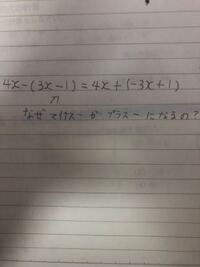 4x-(3x-1)=4x+(-3x+1)
なぜマイナスーがプラスーになるの?